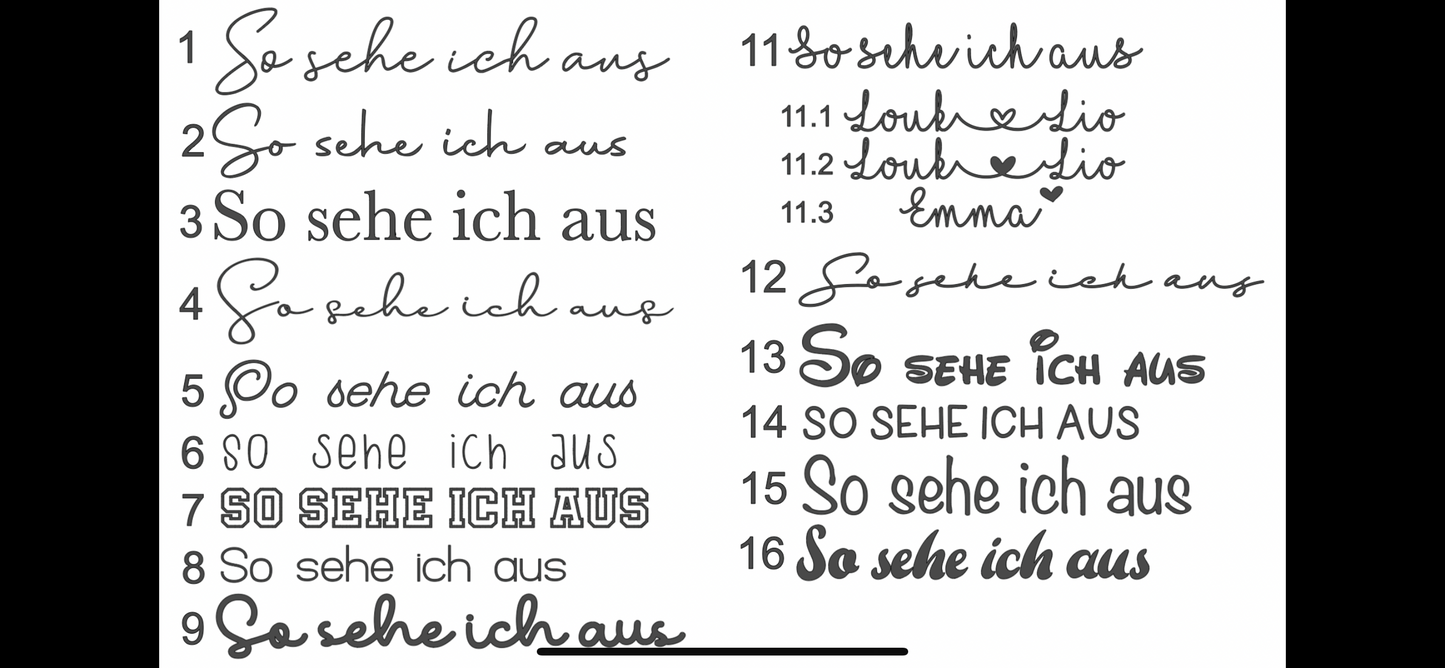 1 So sehe ich aus
2 So sehe ich aus
3 So sehe ich aus
4 So sehe ich aus
5 So sehe ich aus
6 so sehe ich aus
7 SO SEHE ICH AUS
8 So sehe ich aus
9 So sehe ich aus
11 So sehe ich aus
11.1 Louk Lio
11.2 Louk Lio
11.3 Emma
12 So sehe ich aus
13 So SEHE iCH AUS
14 SO SEHE ICH AUS
15 So sehe ich aus
16 So sehe ich aus